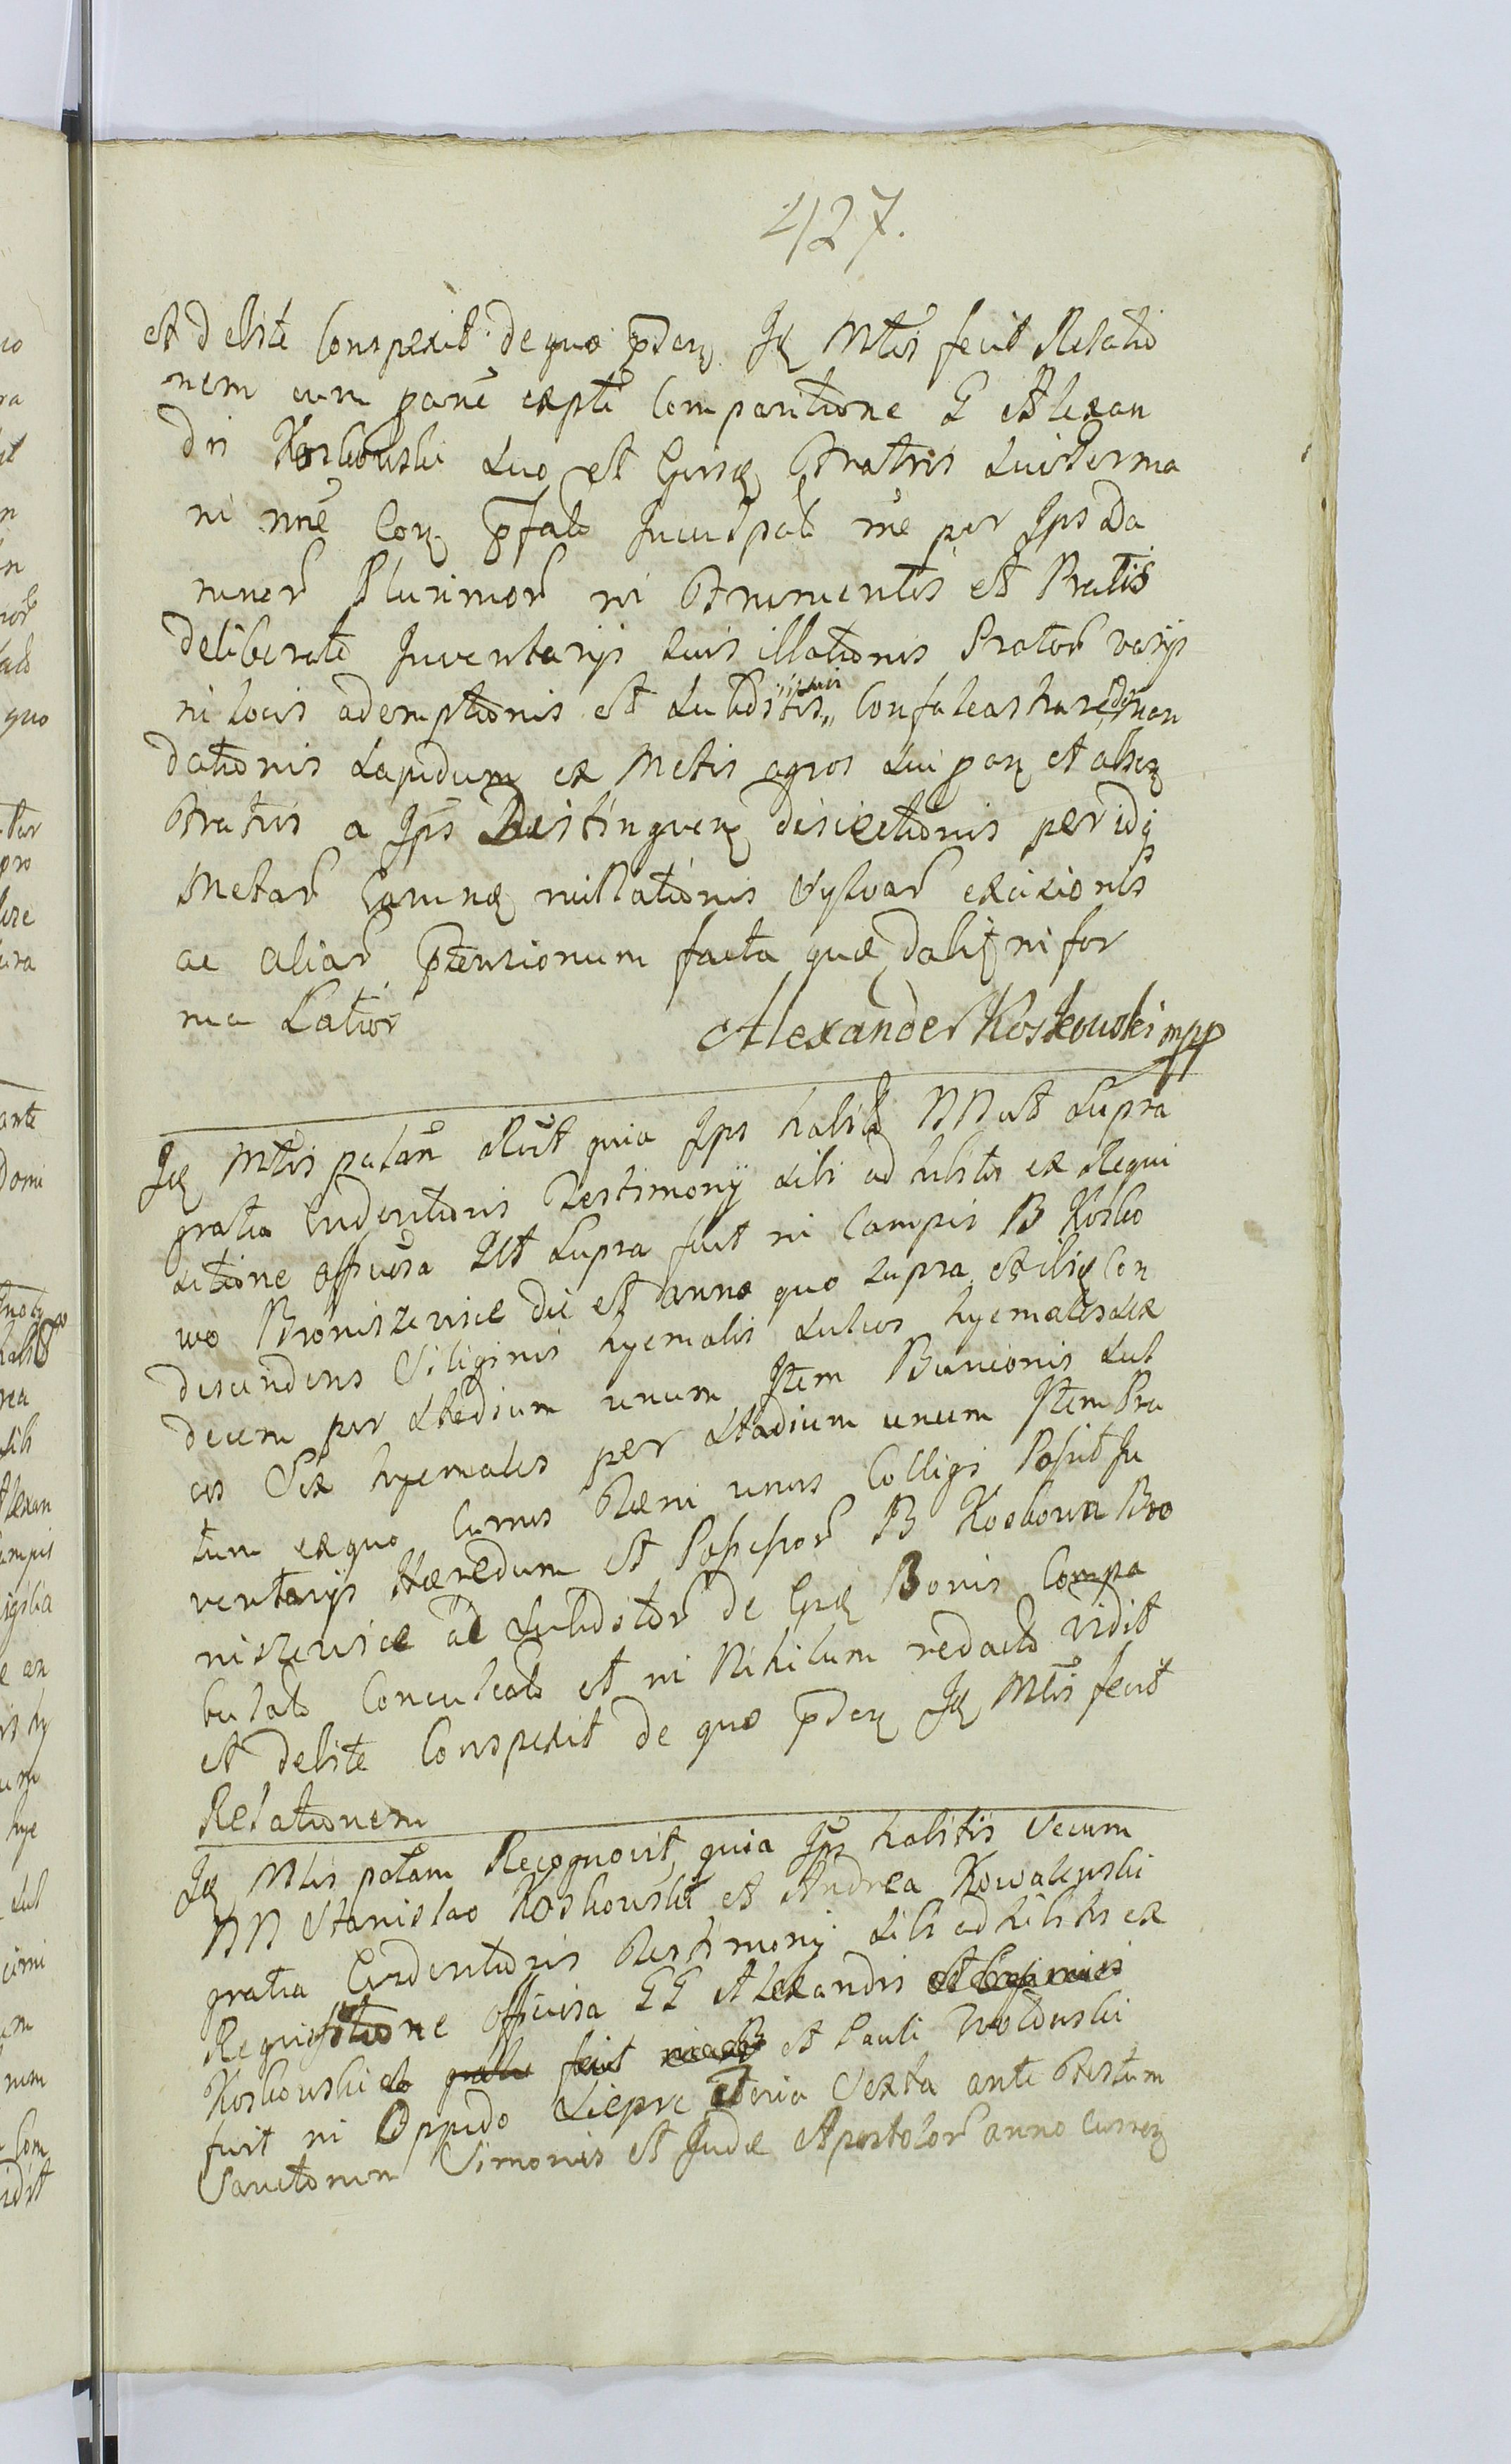 427.
et debite Conspexit de quo pdcę Ję Mtis fecit Relatio
nem cum panē expti Comparitione G Alexan
dri Koskowski suo et Ejusę Fratris sui Germa
ni nnē Corę pfato per Ips Da
mnor Plurimor in Frumentis et Pratis
deliberate Inventarijs suis illationis Prator varijs
in locis ademptionis et subditis ipsius
dationis Lapidum ex Metis agros sui parę et alterę
Fratris a Ips Distinguenę disiectionis per idę
Metar Earumę nullationis Sylvar excisionis
ac aliar ptensionum facta quæ dabitę in for
ma Latior
Alexander Koskowski mpp
Ję Mtis palam Rlut quia Ips habitis NN ut Supra
gratia Evidentioris Testimony sibi adhibitis ex Requi
sitione officiosa Ut Supra fuit in Campis B Kosko
wo Broniszewice die et anno quo supra et ibię Con
descendens Siliginis hyemalis sulcos hyemales sex
decem per stadium unum Item Buncionis sul
cos Sex hyemales per stadium unum Item Pra
tum ex quo Currus Fæni unus Colligi Posset In
ventarijs Hæredum et Possessor B Koskowa Bro
niszewice ac Subditor de Ejsę Bonis Compa
bulato Conculcato et in Nihilum redacto vidit
et debite Conspexit de quo pdcę Ję Mtis fecit
Relationem
Ję Mtis palam Recognovit, quia Ips habitis Secum
NN Stanislao Koskowski et Andrea Kowalewski
gratia Evidentioris Testimony sibi adhibitis ex
Requisitione officiosa GG Alexandri
Koskowski et Pauli Woldowski
fuit in Oppido Siepre Feria Sexta ante Festum
Sanctorum Simonis et Judæ Apostolor anno Currenę